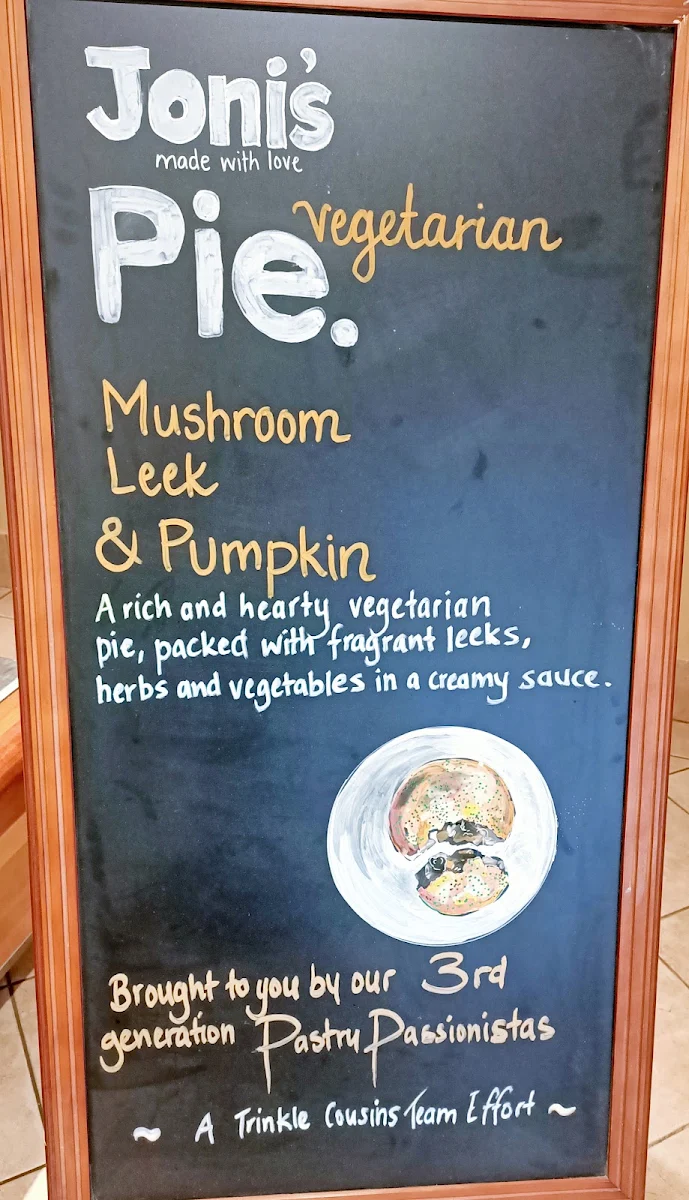 Joni's
made with love
Pie. vegetarian
Mushroom
Leek
& Pumpkin
A rich and hearty vegetarian
pie, packed with fragrant leeks,
herbs and vegetables in a creamy sauce.
Brought to you by our 3rd
generation Pastry Passionistas
~ A Trinkle Cousins Team Effort ~